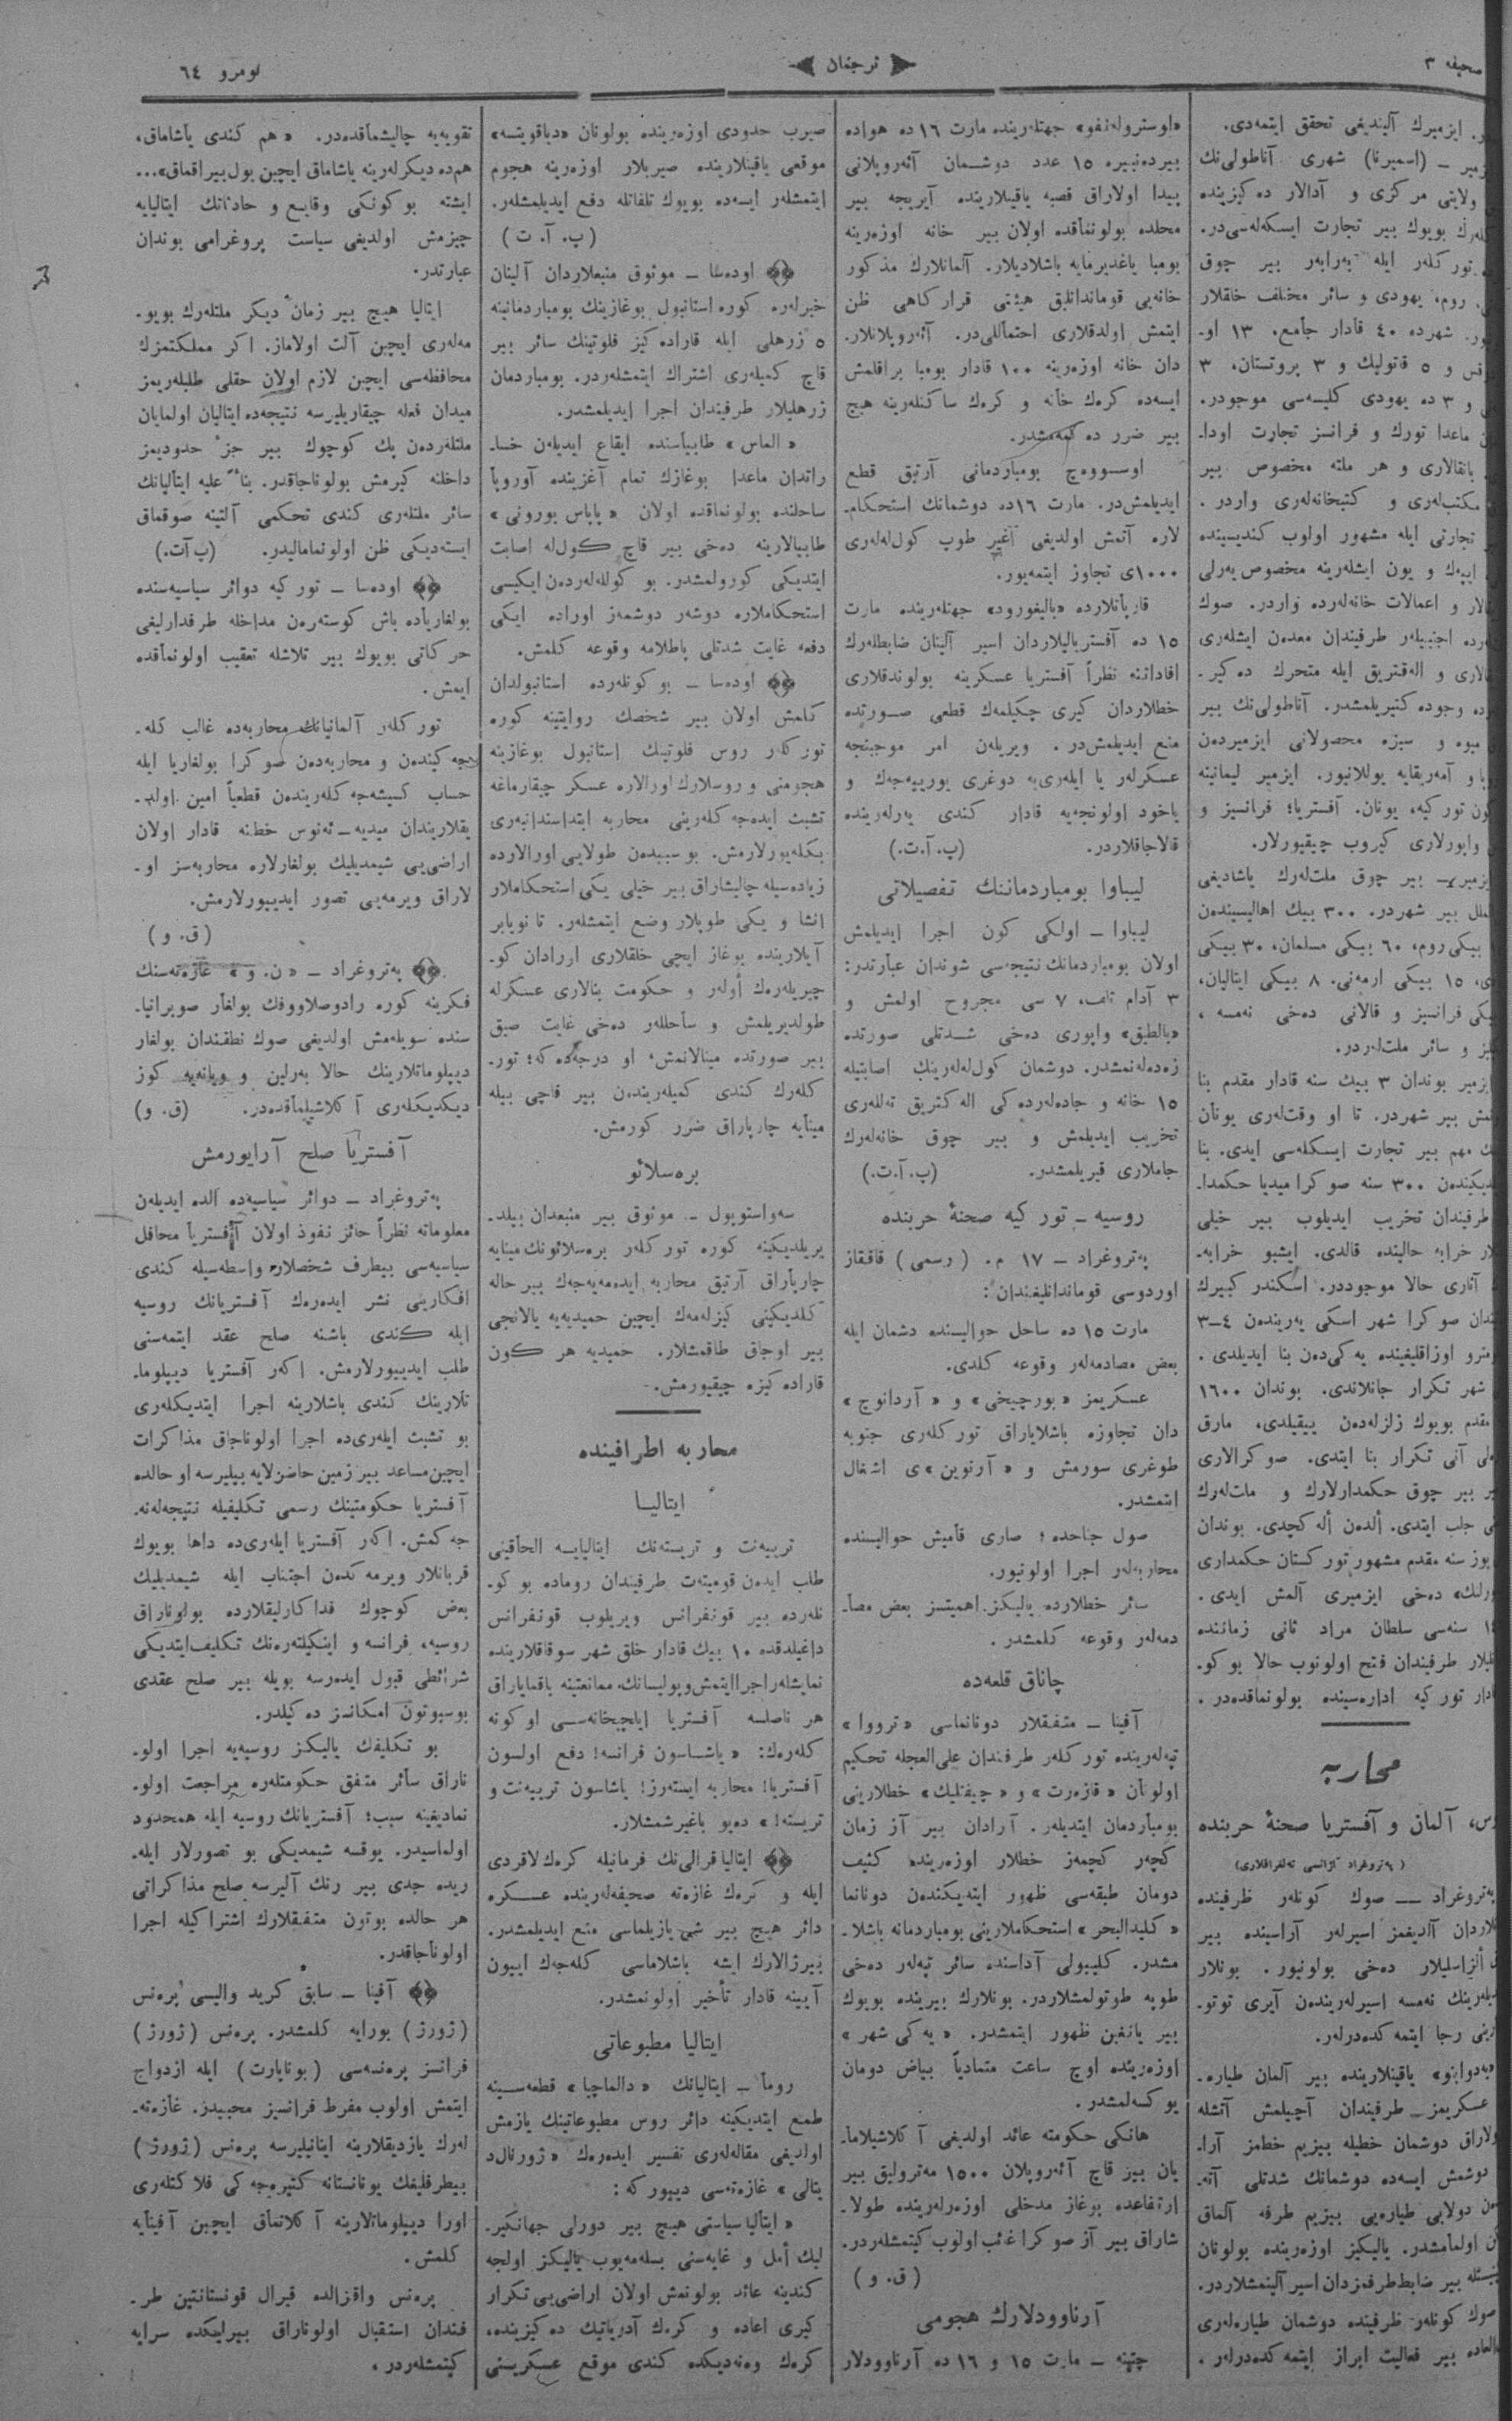 صحیفه ۳
ترجمان
نومرو ٦٤
ایزمیرك آلیندیغی تحقق ایتمه‌دی.
(اسمیرنا) شهری آناطولی‌نك
ولایتی مركزی و آدالار ده‌كیزینده
بویوك بیر تجارت ایسكه‌له‌سی‌در.
توركلەر ایله به‌رابه‌ر بیر چوق
روم، یهودی و سائر مختلف خلقلار
شهرده ٤٠ قادار جامع، ۱۳ او-
و ٥ قاتولیك و ۳ پروتستان، ۳
و ۳ ده یهودی كلیسه‌سی موجودر.
ماعدا تورك و فرانسز تجارت اودا-
بانقالاری و هر ملته مخصوص بیر
مكتب‌لەری و كتبخانه‌لەری واردر.
تجارتی ایله مشهور اولوب كندیسینده
ایپه‌ك و یون ایشلەرینه مخصوص یه‌رلی
و اعمالات خانه‌لەرده واردر. صوك
اجنبیلەر طرفیندان معدن ایشلەری
و اله‌قتریق ایله متحرك ده‌كیر-
وجوده كتیریلمشدر. آناطولی‌نك بیر
میوه و سبزه محصولاتی ایزمیردەن
و آمه‌ریقایه یوللانیور. ایزمیر لیمانینه
توركیه، یونان. آفستریا؛ فرانسیز و
واپورلاری كیروب چیقیورلار.
بیر چوق ملت‌لەرك یاشادیغی
بیر شهردر. ۳۰۰ بیك اهالیسیندەن
بیكی روم، ٦٠ بیكی مسلمان، ۳۰ بیكی
۱٥ بیكی ارمه‌نی. ۸ بیكی ایتالیان،
فرانسیز و قالانی دەخی نه‌مسه،
و سائر ملت‌لەردر.
بوندان ۳ بیك سنه قادار مقدم بنا
بیر شهردر. تا او وقت‌لەری یونان
مهم بیر تجارت ایسكله‌سی ایدی. بنا
۳۰۰ سنه صوكرا میدیا حكمدا-
طرفیندان تخریب ایدیلوب بیر خیلی
خرابه حالینده قالدی. ایشبو خرابه-
آثاری حالا موجوددر. اسكندر كبیرك
صوكرا شهر اسكی یه‌ریندەن ٤–۳
اوزاقلیغینده یه‌كی‌دەن بنا ایدیلدی.
شهر تكرار جانلاندی. بوندان ۱٦۰۰
مقدم بویوك زلزله‌دەن ییقیلدی، مارق
آنی تكرار بنا ایتدی. صوكرالاری
بیر چوق حكمدارلارك و ملت‌لەرك
جلب ایتدی. ألدەن أله كچدی. بوندان
یوز سنه مقدم مشهور توركستان حكمداری
دەخی ایزمیری آلمش ایدی.
سنه‌سی سلطان مراد ثانی زماننده
طرفیندان فتح اولونوب حالا بوكو-
توركیه اداره‌سینده بولونماقدەدر.
محاربه
آلمان و آفستریا صحنهٔ حربنده
(په‌تروغراد آژانسی ته‌لغرافلاری)
صوك كونلەر ظرفینده
آلدیغمز اسیرلەر آراسینده بیر
دەخی بولونیور. بونلار
نه‌مسه اسیرلەریندەن آیری توتو-
رجا ایتمه‌كدەدرلەر.
یاقینلارینده بیر آلمان طیاره-
عسكریمز طرفیندان آچیلمش آتشله
دوشمان خطیله بیزیم خطمز آرا-
دوشمش ایسه‌ده دوشمانك شدتلی آتە-
دولایی طیاره‌یی بیزیم طرفه آلماق
اولمامشدر. یالیكیز اوزەرینده بولونان
بیر ضابط طرفمزدان اسیر آلینمشلاردر.
صوك كونلەر ظرفینده دوشمان طیاره‌لەری
بیر فعالیت ابراز ایتمه‌كدەدرلەر.
«اوستروله‌نفو» جهتلەرینده مارت ۱٦ ده هواده
بیردەنبیره ۱٥ عدد دوشمان آئه‌روپلانی
پیدا اولاراق قصبه یاقینلارینده آیریجه بیر
محلده بولونماقده اولان بیر خانه اوزەرینه
بومبا یاغدیرمایه باشلادیلار. آلمانلارك مذكور
خانه‌یی قوماندانلق هیئتی قراركاهی ظن
ایتمش اولدقلاری احتمالی‌در. آئه‌روپلانلار-
دان خانه اوزەرینه ۱۰۰ قادار بومبا براقلمش
ایسه‌ده كرەك خانه و كرەك ساكنلەرینه هیچ
بیر ضرر ده‌كمه‌مشدر.
اوسووه‌چ بومباردمانی آرتیق قطع
ایدیلمش‌در. مارت ۱٦ده دوشمانك استحكام-
لاره آتمش اولدیغی آغیر طوپ كولله‌لەری
۱۰۰۰ی تجاوز ایتمه‌یور.
قارپاتلارده «بالیغورود» جهتلەرینده مارت
۱٥ ده آفستریالیلاردان اسیر آلینان ضابطلەرك
افاداتنه نظراً آفستریا عسكرینه بولوندقلاری
خطلاردان كیری چكیلمەك قطعی صورتده
منع ایدیلمش‌در. ویریلەن امر موجبنجه
عسكرلەر یا ایلەری‌یه دوغری یورییه‌جەك و
یاخود اولونجه‌یه قادار كندی یه‌رلەرینده
قالاجاقلاردر. (پ. آ. ت.)
لیباوا بومباردماننك تفصیلاتی
لیباوا – اولكی كون اجرا ایدیلمش
اولان بومباردمانك نتیجه‌سی شوندان عبارتدر:
۳ آدام تلف، ۷ سی مجروح اولمش و
«بالطیق» واپوری دەخی شدتلی صورتده
زەده‌لەنمشدر. دوشمان كولله‌لەرینك اصابتیله
۱٥ خانه و جاده‌لەردەكی اله‌كتریق ته‌للەری
تخریب ایدیلمش و بیر چوق خانه‌لەرك
جاملاری قیریلمشدر. (پ. آ. ت.)
روسیه – توركیه صحنهٔ حربنده
په‌تروغراد – ۱۷ م. (رسمی) قافقاز
اوردوسی قوماندانلیغندان:
مارت ۱٥ ده ساحل حوالیسنده دشمان ایله
بعض مصادمه‌لەر وقوعه كلدی.
عسكریمز «بورچیخی» و «آردانوچ»
دان تجاوزه باشلایاراق توركلەری جنوبه
طوغری سورمش و «آرنوین»ی اشغال
ایتمشدر.
صول جناحده؛ صاری قامیش حوالیسنده
محاربه‌لەر اجرا اولونیور.
سائر خطلارده یالیكز اهمیتسز بعض مصا-
دمه‌لەر وقوعه كلمشدر.
چاناق قلعه‌ده
آفینا – متفقلار دونانماسی «ترووا»
تپه‌لەرینده توركلەر طرفندان علی‌العجله تحكیم
اولونان «قازەرت» و «چیفتلیك» خطلارینی
بومباردمان ایتدیلەر. آرادان بیر آز زمان
كچەر كچمەز خطلار اوزەرینده كثیف
دومان طبقه‌سی ظهور ایتدیكندەن دونانما
«كلیدالبحر» استحكاملارینی بومباردمانه باشلا-
مشدر. كلیبولی آداسنده سائر تپه‌لەر دەخی
طوپه طوتولمشلاردر. بونلارك بیرینده بویوك
بیر یانغین ظهور ایتمشدر. «یه‌كی شهر»
اوزەرینده اوچ ساعت متمادیاً بیاض دومان
یوكسەلمشدر.
هانكی حكومته عائد اولدیغی آكلاشیلاما-
یان بیر قاچ آئه‌روپلان ۱٥۰۰ مه‌ترولیق بیر
ارتفاعده بوغاز مدخلی اوزەرلەرینده طولا-
شاراق بیر آز صوكرا غائب اولوب كیتمشلەردر.
(ق. و)
آرناوودلارك هجومی
چتینه – مارت ۱٥ و ۱٦ ده آرناوودلار
صیرب حدودی اوزەرینده بولونان «دیاقویتسه»
موقعی یاقینلارینده صیربلار اوزەرینه هجوم
ایتمشلەر ایسه‌ده بویوك تلفاتله دفع ایدیلمشلەر.
(پ. آ. ت)
اوده‌سا – موثوق منبعلاردان آلینان
خبرلەره كوره استانبول بوغازینك بومباردمانینه
٥ زرهلی ایله قاراده‌كیز فلوتینك سائر بیر
قاچ كمیلەری اشتراك ایتمشلەردر. بومباردمان
زرهلیلار طرفیندان اجرا ایدیلمشدر.
«الماس» طابیاسنده ایقاع ایدیلەن خسا-
راتدان ماعدا بوغازك تمام آغزینده آوروپا
ساحلنده بولونماقده اولان «پاپاس بورونی»
طابیالارینه دەخی بیر قاچ كولله اصابت
ایتدیكی كورولمشدر. بو كولله‌لەردەن ایكیسی
استحكاملاره دوشەر دوشمەز اوراده ایكی
دفعه غایت شدتلی پاطلامه وقوعه كلمش.
اوده‌سا – بوكونلەرده استانبولدان
كلمش اولان بیر شخصك روایتینه كوره
توركلەر روس فلوتینك استانبول بوغازینه
هجومنی و روسلارك اورالاره عسكر چیقارماغه
تشبث ایده‌جەكلەرینی محاربه ابتداسندانبەری
بكله‌یورلارمش. بو سببدەن طولایی اورالارده
زیاده‌سیله چالیشاراق بیر خیلی یكی استحكاملار
انشا و یكی طوپلار وضع ایتمشلەر. تا نویابر
آیلارینده بوغاز ایچی خلقلاری ارادان كو-
چیریلەرەك أولەر و حكومت بنالاری عسكرله
طولدیریلمش و ساحللەر دەخی غایت صیق
بیر صورتده مینالانمش، او درجه‌ده كه؛ تور-
كلەرك كندی كمیلەریندەن بیر قاچی بیله
مینایه چارپاراق ضرر كورمش.
بره‌سلائو
سه‌واستوپول – موثوق بیر منبعدان بیلد-
یریلدیكینه كوره توركلەر بره‌سلائونك مینایه
چارپاراق آرتیق محاربه ایده‌مه‌یه‌جەك بیر حاله
كلدیكینی كیزله‌مەك ایچین حمیدیه‌یه یالانجی
بیر اوجاق طاقمشلار. حمیدیه هر كون
قاراده‌كیزه چیقیورمش.
محاربه اطرافینده
ایتالیا
ترییه‌نت و تریسته‌نك ایتالیایه الحاقینی
طلب ایدەن قومیته‌ت طرفیندان روماده بوكو-
نلەرده بیر قونفرانس ویریلوب قونفرانس
داغیلدقده ۱۰ بیك قادار خلق شهر سوقاقلارینده
نمایشلەر اجرا ایتمش و پولیسانك ممانعتینه باقمایاراق
هر ناصلسه آفستریا ایلچیخانه‌سی اوكونه
كلەرەك: «یاشاسون فرانسه! دفع اولسون
آفستریا! محاربه ایستەرز! یاشاسون ترییه‌نت و
تریسته!» دەیو باغیرشمشلار.
ایتالیا قرالی‌نك فرمانیله كرەك لاقردی
ایله و كرەك غازه‌ته صحیفه‌لەرینده عسكره
دائر هیچ بیر شی یازیلماسی منع ایدیلمشدر.
بیرژالارك ایشه باشلاماسی كله‌جەك اییون
آیینه قادار تأخیر اولونمشدر.
ایتالیا مطبوعاتی
روما – ایتالیانك «دالماچیا» قطعه‌سینه
طمع ایتدیكینه دائر روس مطبوعاتینك یازمش
اولدیغی مقاله‌لەری تفسیر ایدەرەك «ژورنال‌د
یتالی» غازه‌ته‌سی دییور كه:
«ایتالیا سیاستی هیچ بیر دورلی جهانكیر-
لیك أمل و غایه‌سنی بسله‌مه‌یوب یالیكز اولجه
كندینه عائد بولونمش اولان اراضی‌یی تكرار
كیری اعاده و كرەك آدریاتیك ده‌كیزینده،
كرەك وه‌نه‌دیكده كندی موقع عسكریسنی
تقویه‌یه چالیشماقدەدر. «هم كندی یاشاماق،
هم‌ده دیكرلەرینه یاشاماق ایچین یول بیراقماق»...
ایشته بوكونكی وقایع و حادثاتك ایتالیایه
چیزمش اولدیغی سیاست پروغرامی بوندان
عبارتدر.
ایتالیا هیچ بیر زمان دیكر ملتلەرك بویو-
مه‌لەری ایچین آلت اولاماز. اكر مملكتمزك
محافظه‌سی ایچین لازم اولان حقلی طلبلەریمز
میدان فعله چیقاریلیرسه نتیجه‌ده ایتالیان اولمایان
ملتلەردەن پك كوچوك بیر جزء حدودیمز
داخلنه كیرمش بولوناجاقدر. بناءً علیه ایتالیانك
سائر ملتلەری كندی تحكمی آلتینه صوقماق
ایسته‌دیكی ظن اولونمامالیدر. (پ آ ت.)
اوده‌سا – توركیه دوائر سیاسیه‌سنده
بولغاریاده باش كوسته‌رەن مداخله طرفدارلیغی
حركاتی بویوك بیر تلاشله تعقیب اولونماقده
ایمش.
توركلەر آلمانیانك محاربه‌ده غالب كله-
میه‌جه‌كیندەن و محاربه‌دەن صوكرا بولغاریا ایله
حساب كسیشه‌جەكلەریندەن قطعیاً امین اولد-
یقلاریندان میدیه–ئه‌نوس خطنه قادار اولان
اراضی‌یی شیمدیلیك بولغارلاره محاربه‌سز او-
لاراق ویرمه‌یی تصور ایدییورلارمش.
(ق. و)
په‌تروغراد – «ن. و» غازه‌ته‌سنك
فكرینه كوره رادوصلاووفك بولغار صوبرانیا-
سنده سویلەمش اولدیغی صوك نطقندان بولغار
دیپلوماتلارینك حالا به‌رلین و ویانه‌یه كوز
دیكدیكلەری آكلاشیلماقدەدر. (ق. و)
آفستریا صلح آرایورمش
په‌تروغراد – دوائر سیاسیه‌ده ألده ایدیلەن
معلوماته نظراً حائز نفوذ اولان آفستریا محافل
سیاسیه‌سی بیطرف شخصلار واسطه‌سیله كندی
افكارینی نشر ایدەرەك آفستریانك روسیه
ایله كندی باشنه صلح عقد ایتمه‌سنی
طلب ایدییورلارمش. اكەر آفستریا دیپلوما-
تلارینك كندی باشلارینه اجرا ایتدیكلەری
بو تشبث ایلەری‌ده اجرا اولوناجاق مذاكرات
ایچین مساعد بیر زمین حاضرلایه بیلیرسه او حالده
آفستریا حكومتینك رسمی تكلیفیله نتیجه‌لەنه-
جەكمش. اكەر آفستریا ایلەری‌ده داها بویوك
قربانلار ویرمه‌كدەن اجتناب ایله شیمدیلیك
بعض كوچوك فداكارلیقلارده بولوناراق
روسیه، فرانسه و اینكیلته‌ره‌نك تكلیف ایتدیكی
شرائطی قبول ایدەرسه بویله بیر صلح عقدی
بوسبوتون امكانسز ده‌كیلدر.
بو تكلیفك یالیكز روسیه‌یه اجرا اولو-
ناراق سائر متفق حكومتلەره مراجعت اولو-
نمادیغینه سبب؛ آفستریانك روسیه ایله همحدود
اولماسیدر. یوقسه شیمدیكی بو تصورلار ایله-
ریده جدی بیر رنك آلیرسه صلح مذاكراتی
هر حالده بوتون متفقلارك اشتراكیله اجرا
اولوناجاقدر.
آفینا – سابق كرید والیسی پره‌نس
(ژورژ) بورایه كلمشدر. پره‌نس (ژورژ)
فرانسز پره‌نسه‌سی (بوناپارت) ایله ازدواج
ایتمش اولوب مفرط فرانسیز محبیدر. غازه‌ته-
لەرك یازدیقلارینه اینانیلیرسه پره‌نس (ژورژ)
بیطرفلیغك یونانستانه كتیره‌جەكی فلاكتلەری
اورا دیپلوماتلارینه آكلاتماق ایچین آفینایه
كلمش.
پره‌نس واقزالده قیرال قونستانتین طر-
فندان استقبال اولوناراق بیرلیكده سرایه
كیتمشلەردر.